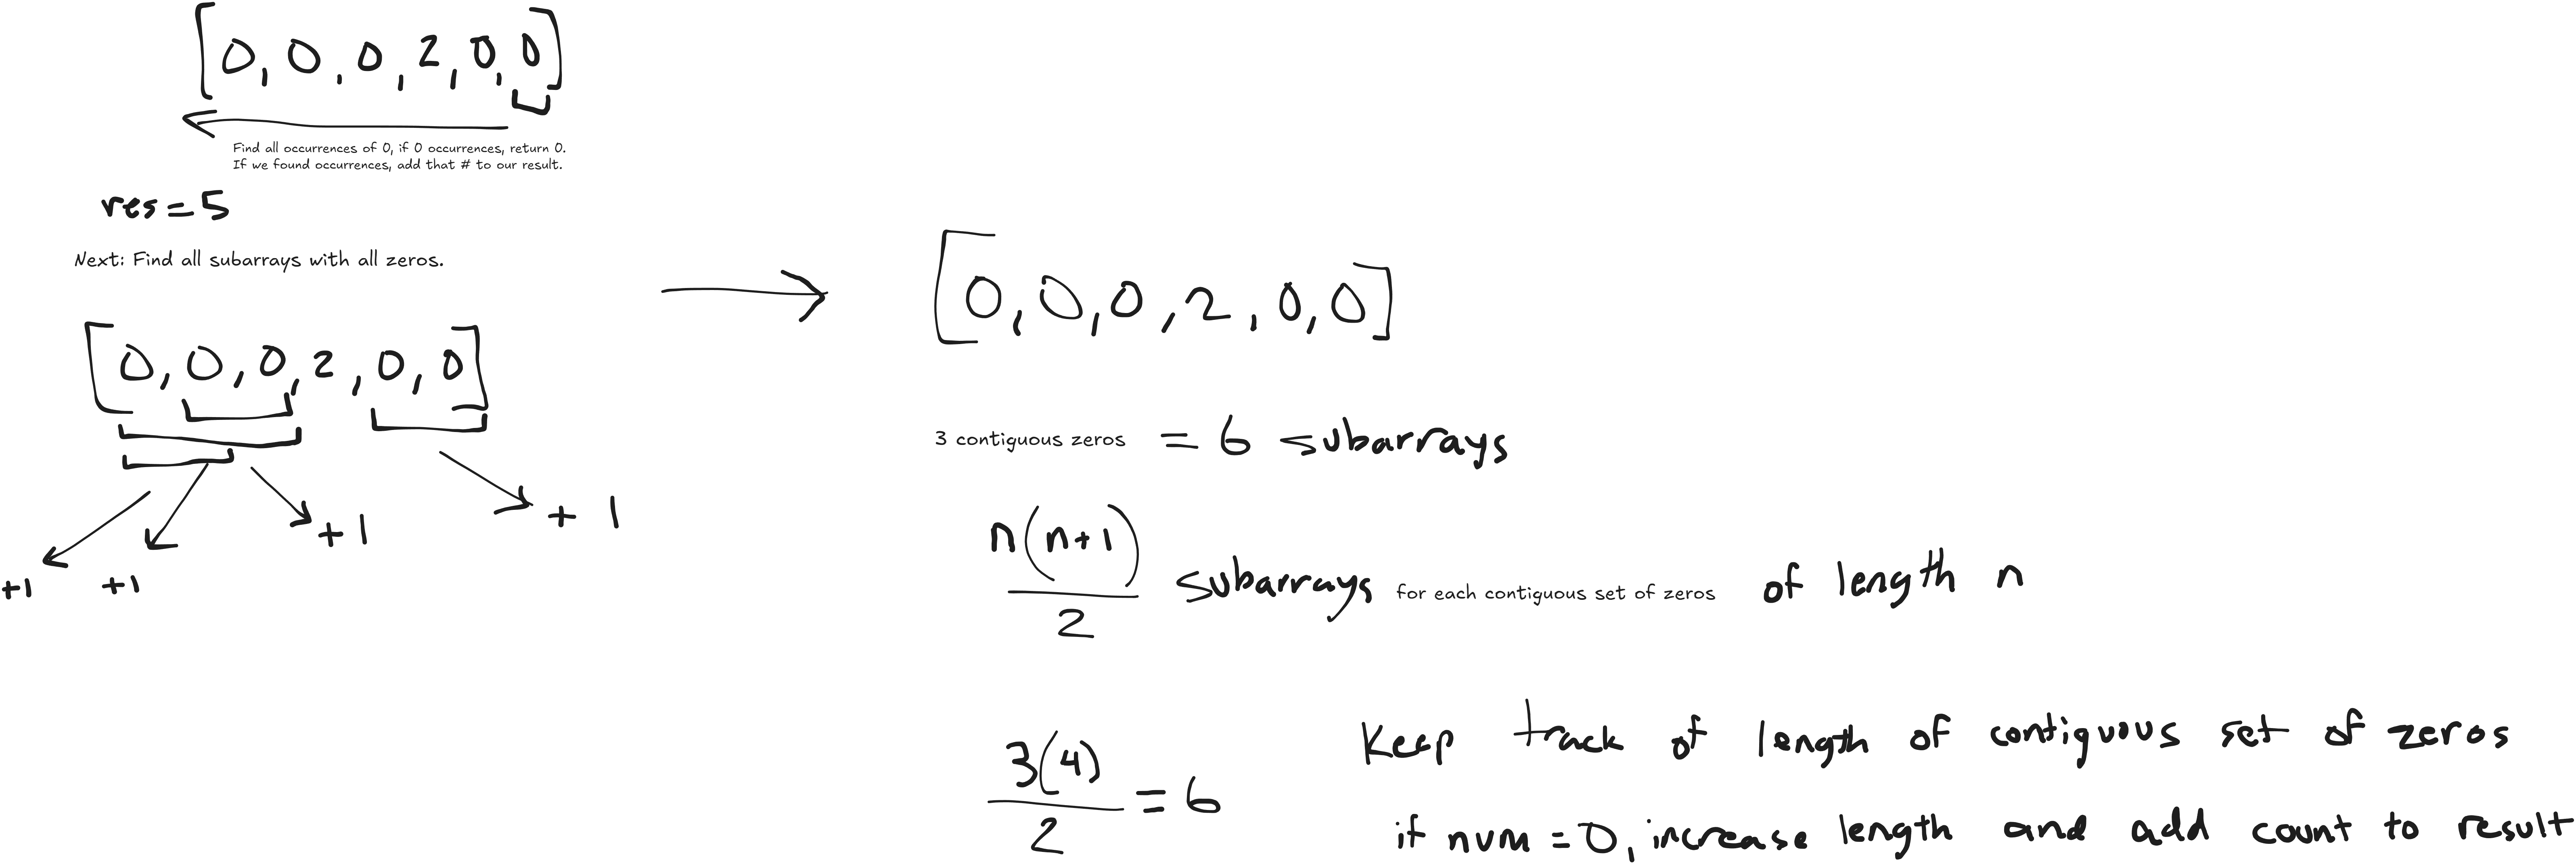 [0, 0, 0, 2, 0, 0]
Find all occurrences of 0, if 0 occurrences, return 0.
If we found occurrences, add that # to our result.
res = 5
Next: Find all subarrays with all zeros.
[0, 0, 0, 2, 0, 0]
+1
+1
+1
+1
[0, 0, 0, 2, 0, 0]
3 contiguous zeros = 6 subarrays
n(n+1)
2
subarrays for each contiguous set of zeros of length n
3(4)
2
= 6
Keep track of length of contiguous set of zeros
if num = 0, increase length and add count to result